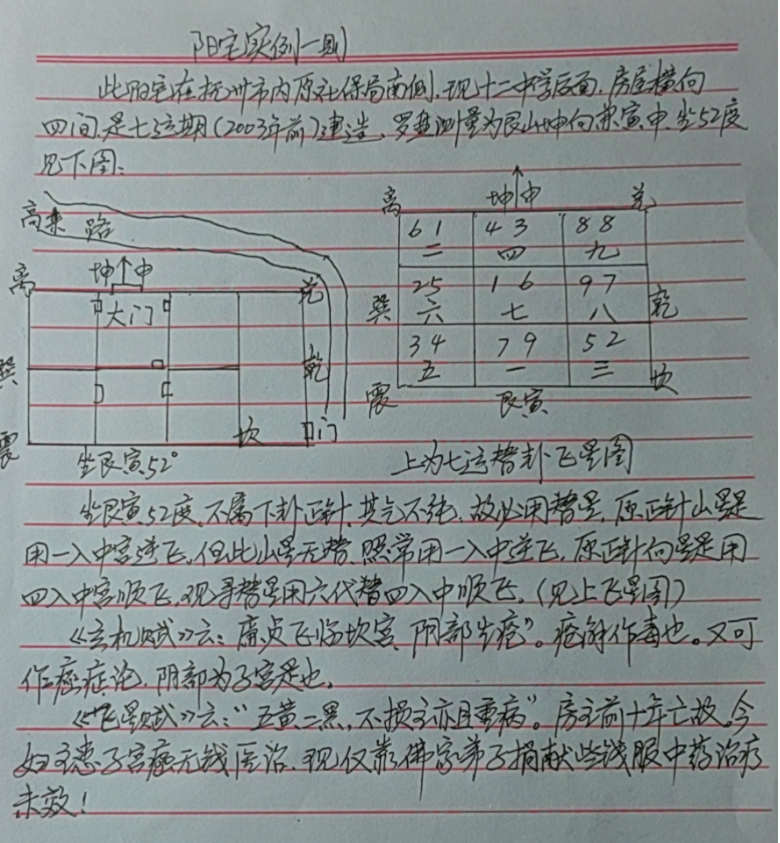 阳宅实例一则
此阳宅在抚州市内原社保局南侧,现十二中学后面,房屋横向
四间是七运期(2003年前)建造,罗盘测量为艮山坤向兼寅申,坐52度
见下图:
高来路
坤↑申
离
兑
大门
巽
乾
震
坎
门
坐艮寅52°
坤↑申
离
兑
61 43 88
二 四 九
25 16 97
巽 六 七 八 乾
34 79 52
五 一 三
震 艮寅 坎
上为七运替卦飞星图
坐艮寅52度,不属下卦正针,其气不纯,故必用替星,原正针山星是
用一入中宫逆飞,但此山星无替,照常用一入中逆飞,原正针向星是用
四入中宫顺飞,现寻替星用六代替四入中顺飞。(见上飞星图)
《玄机赋》云:廉贞飞临坎宫,阴部生疮”。疮解作毒也。又可
作癌症论,阴部为子宫是也。
《飞星赋》云:“五黄二黑,不损主亦且重病”。房主前十年亡故,今
妇主患子宫癌无钱医治,现仅靠佛家弟子捐献些钱服中药治疗
未效!